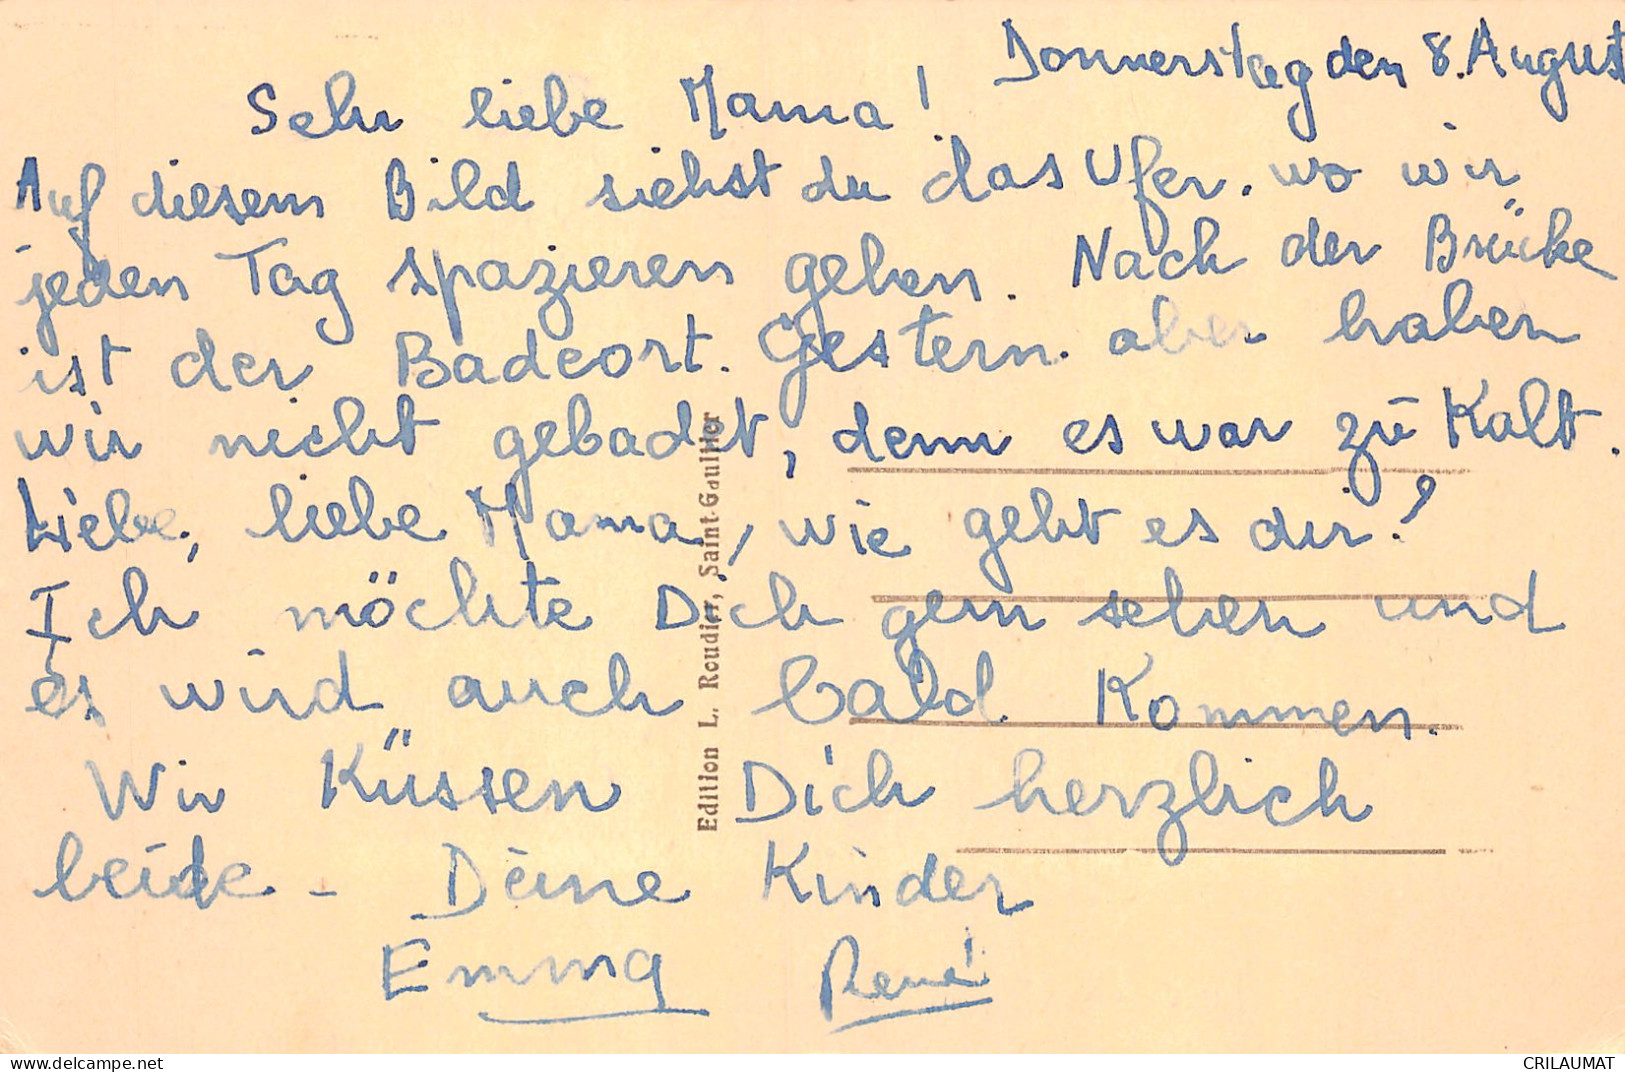 Donnerstag den 8. August
Sehr liebe Mama!
Auf diesem Bild siehst du das Ufer. wo wir
jeden Tag spazieren gehen. Nach der Brücke
ist der Badeort. Gestern aber haben
wir nicht gebadet, denn es war zu Kalt.
Liebe, liebe Mama, wie geht es dir?
Ich möchte Dich gern sehen und
es wird auch bald Kommen.
Wir Küssen Dich herzlich
beide - Deine Kinder
Emma René
Edition L. Roudier, Saint-Gaultier
www.delcampe.net
CRILAUMAT